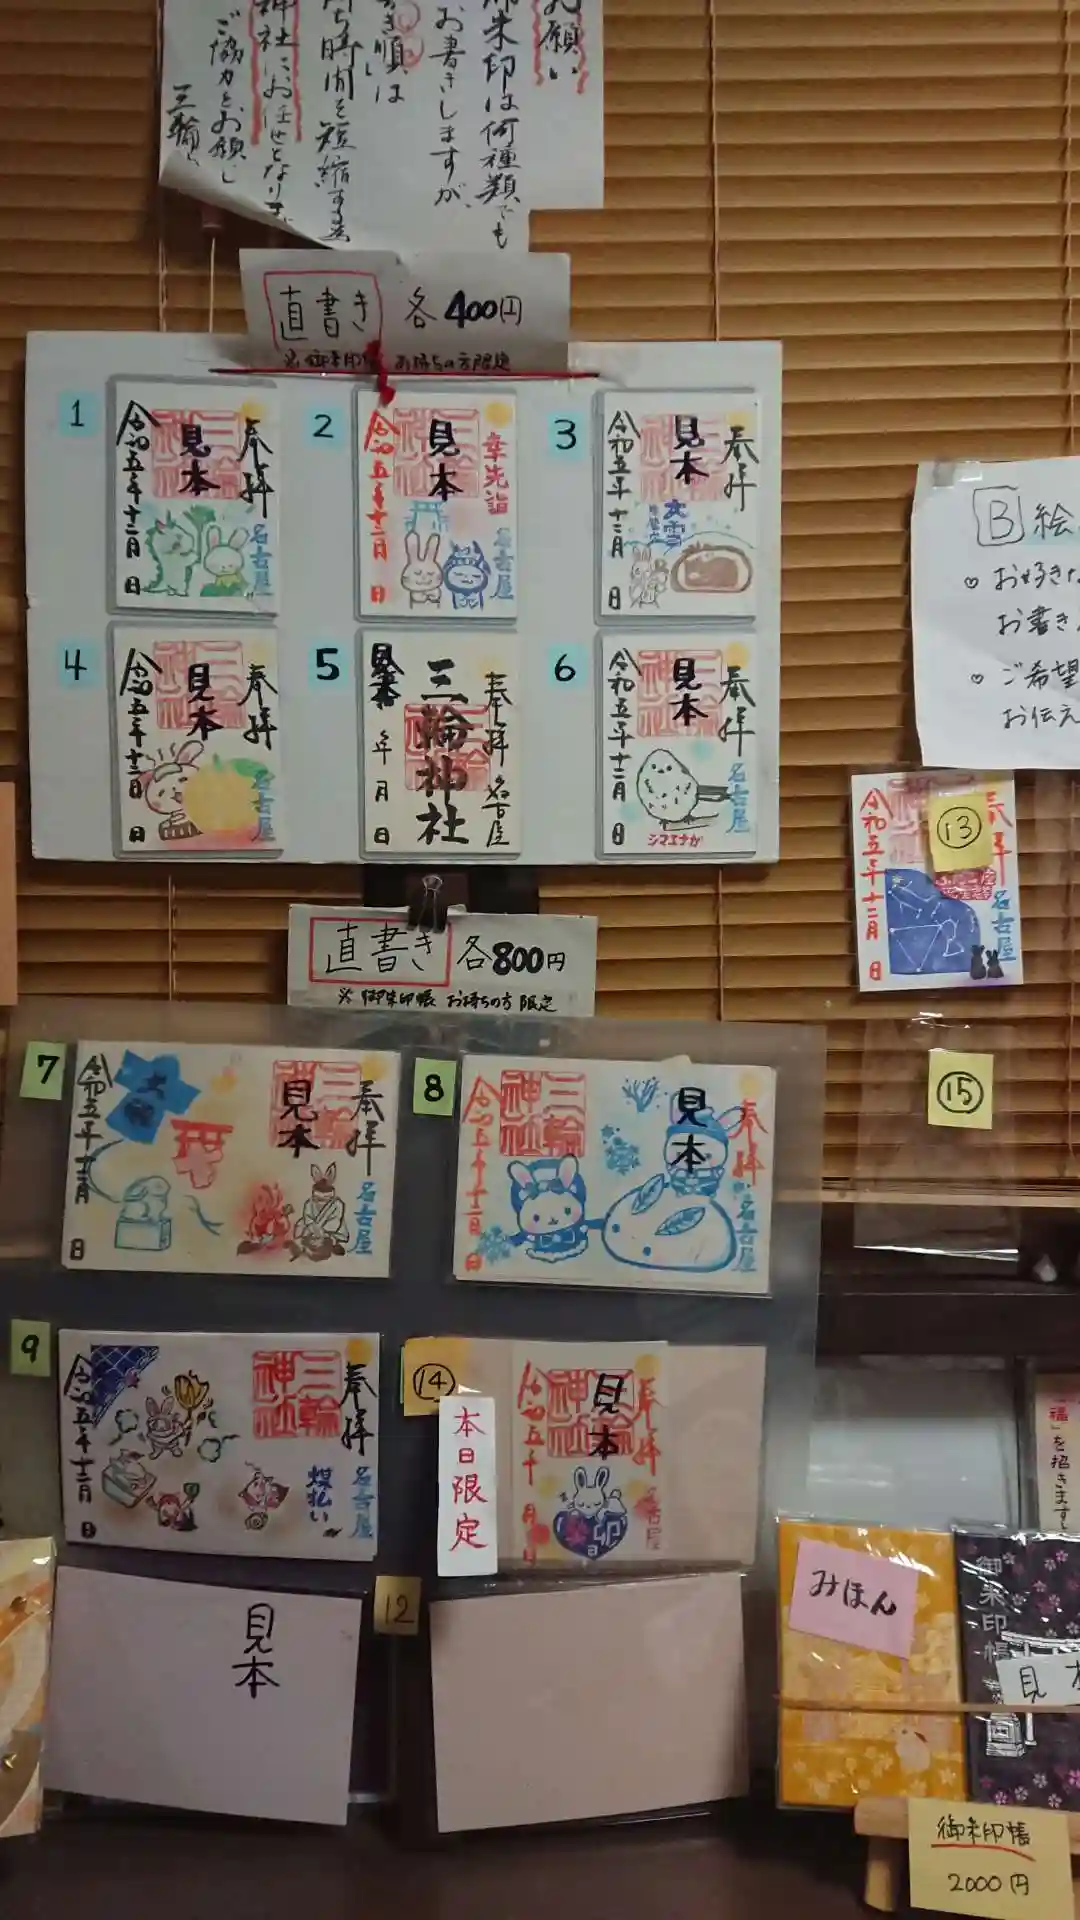 お願い
御朱印は何種類でも
お書きしますが、
書き順は
待ち時間を短縮する為
神社にお任せとなります
ご協力をお願いし
三輪
直書き 各400円
※御朱印帳 お持ちの方限定
1
奉拝
三輪神社
見本
名古屋
令和五年十二月 日
2
幸先詣
三輪神社
見本
名古屋
令和五年十二月 日
3
奉拝
三輪神社
見本
大雪
名古屋
令和五年十二月 日
4
奉拝
三輪神社
見本
名古屋
令和五年十二月 日
5
奉拝 名古屋
三輪神社
見本
年 月 日
6
奉拝
三輪神社
見本
名古屋
シマエナガ
令和五年十二月 日
B 絵
♡ お好きな
お書き
♡ ご希望
お伝え
13
奉拝
名古屋
ふたご座
令和五年十二月 日
15
直書き 各800円
※御朱印帳 お持ちの方限定
7
奉拝
三輪神社
見本
名古屋
令和五年十二月 日
8
奉拝
三輪神社
見本
名古屋
令和五年十二月 日
9
奉拝
三輪神社
名古屋
煤払い
令和五年十二月 日
14
本日限定
奉拝
三輪神社
見本
名古屋
卯
令和五年 月
見本
12
福」を招きます
みほん
御朱印帳
見本
御朱印帳
2000円